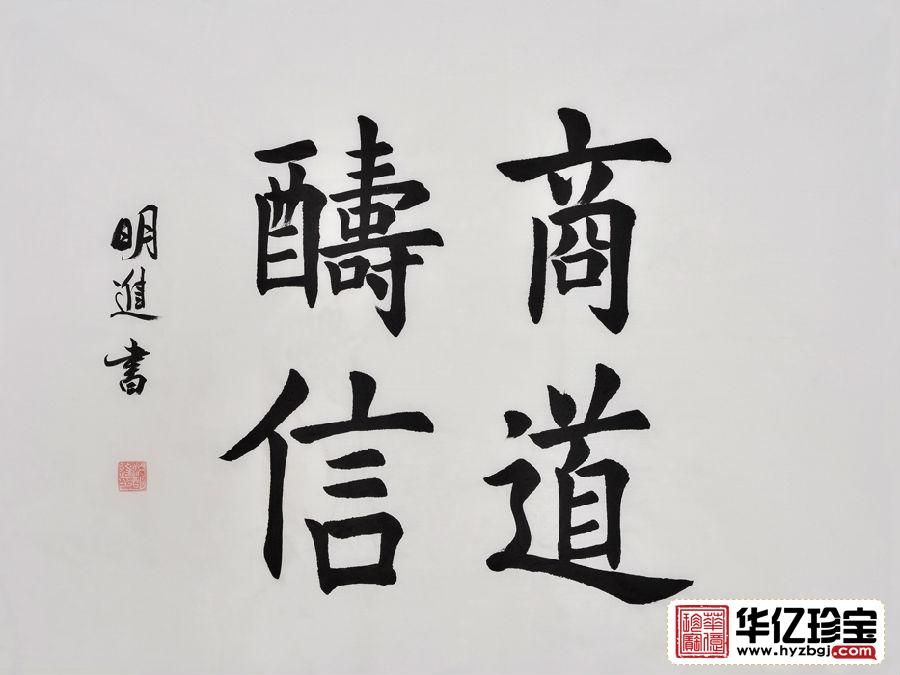 商道
醻信
明進書
華億
珍寶
华亿珍宝
www.hyzbgj.com